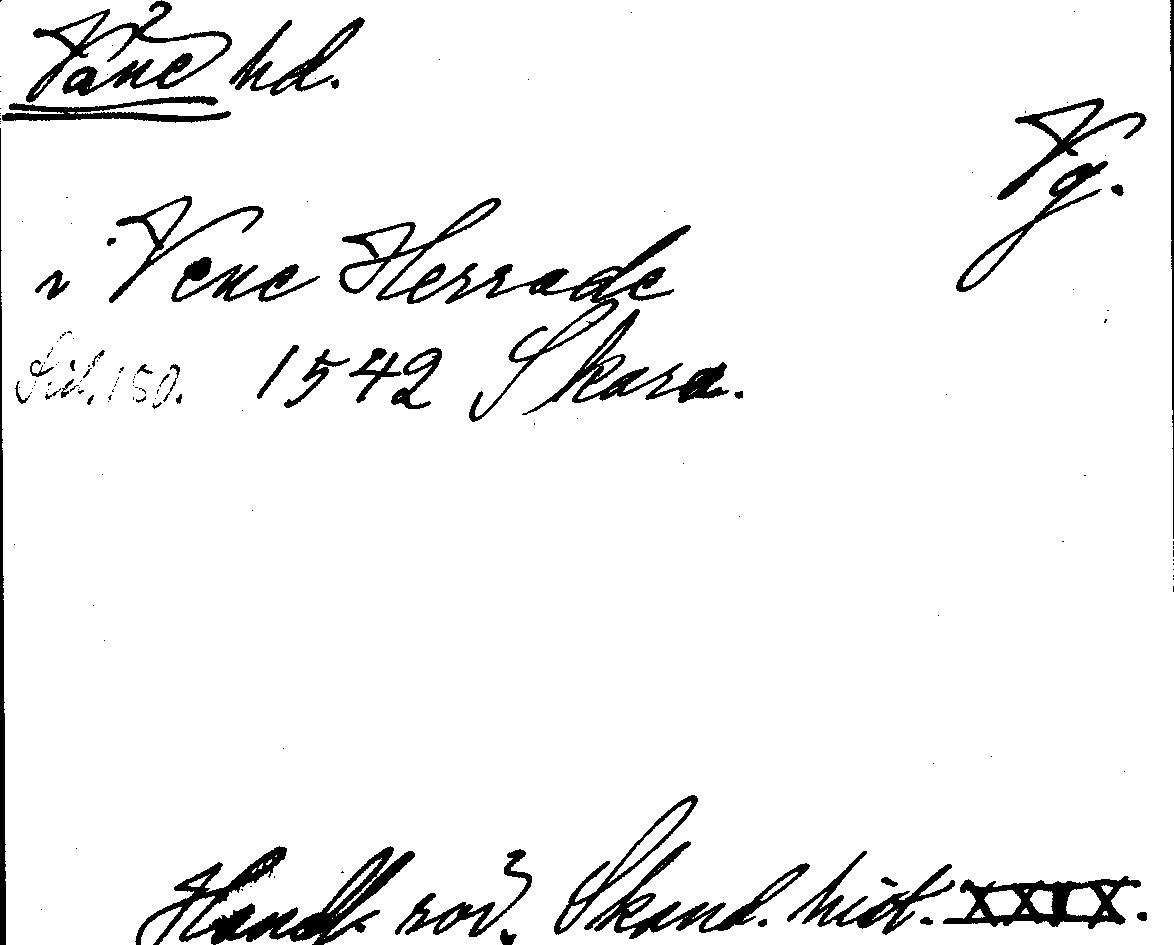 Väne hd.
Vg.
i Vene Herrade
Sid. 150. 1542 Skara.
Handl. rör. Skand. hist. XXIX.